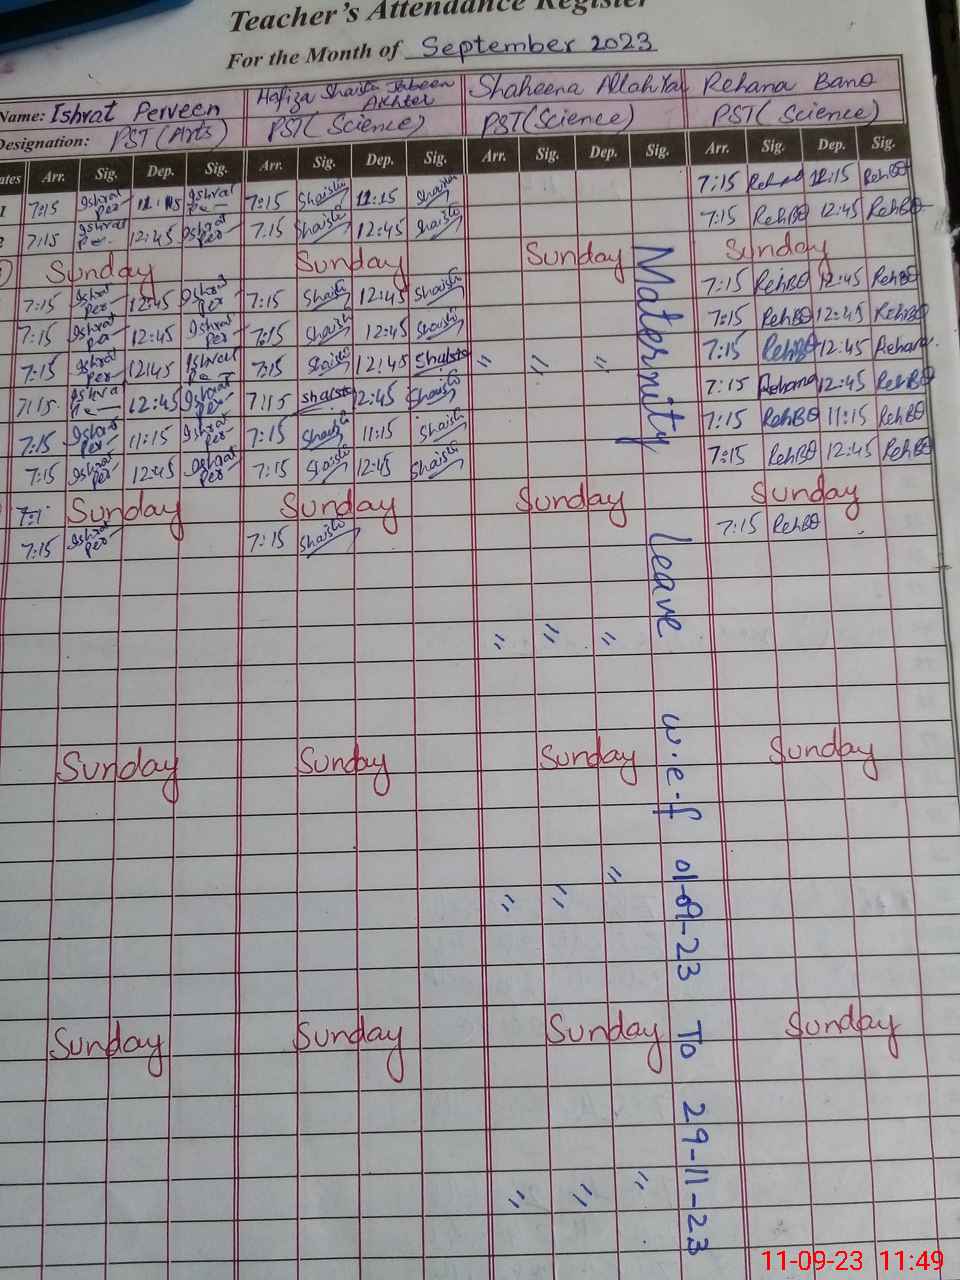 Teacher's Attendance Register
For the Month of September 2023
Name: Ishrat Perveen Hafiza Shaista Jabeen Akhter Shaheena Allah Yar Rehana Bano
Designation: PST (Arts) PST (Science) PST (Science) PST (Science)
Dates Arr. Sig. Dep. Sig. Arr. Sig. Dep. Sig. Arr. Sig. Dep. Sig. Arr. Sig. Dep. Sig.
1 7:15 Ishrat Per 11:15 Ishrat Per 7:15 Shaista 11:15 Shaista 7:15 Rehana 11:15 RehBO
2 7:15 Ishrat Per 12:45 Ishrat Per 7:15 Shaista 12:45 Shaista 7:15 RehBO 12:45 RehBO
Sunday Sunday Sunday Sunday
7:15 Ishrat Per 12:45 Ishrat Per 7:15 Shaista 12:45 Shaista 7:15 RehBO 12:45 RehBO
7:15 Ishrat Per 12:45 Ishrat Per 7:15 Shaista 12:45 Shaista 7:15 RehBO 12:45 RehBO
7:15 Ishrat Per 12:45 Ishrat Per 7:15 Shaista 12:45 Shaista " " " 7:15 RehBO 12:45 Rehana
7:15 Ishrat Per 12:45 Ishrat Per 7:15 Shaista 12:45 Shaista 7:15 Rehana 12:45 RehBO
7:15 Ishrat Per 11:15 Ishrat Per 7:15 Shaista 11:15 Shaista 7:15 RehBO 11:15 RehBO
7:15 Ishrat Per 12:45 Ishrat Per 7:15 Shaista 12:45 Shaista 7:15 RehBO 12:45 RehBO
Sunday Sunday Sunday Sunday
7:15 Ishrat Per 7:15 Shaista 7:15 RehBO
" " "
Sunday Sunday Sunday Sunday
" " "
Sunday Sunday Sunday Sunday
" " "
Maternity Leave w.e.f 01-09-23 To 29-11-23
11-09-23 11:49